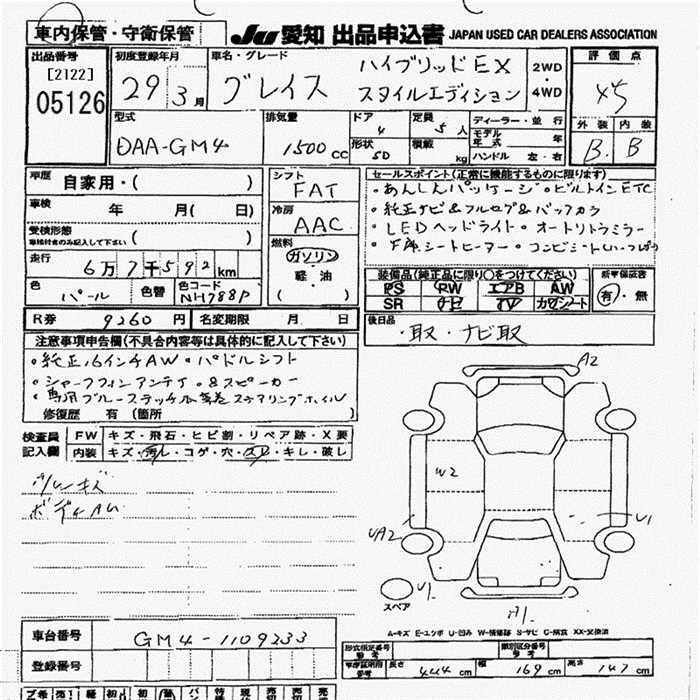 車内保管・守衛保管
JU 愛知 出品申込書 JAPAN USED CAR DEALERS ASSOCIATION
出品番号 [2122] 05126
初度登録年月 29 3月
車名・グレード グレイス ハイブリッドEX スタイルエディション
2WD ・ 4WD
評価点
外装 B 内装 B
型式 DAA-GM4
排気量 1500 CC
ドア 4 形状 SD
定員 5人 積載 kg
ディーラー・並行
モデル年式 年
ハンドル 左・右
車歴 自家用・( )
車検 年 月( 日)
受検形態 車検付きのみ記入して下さい ( )
走行 6万7千592km
色 パール 色替 色コード NH788P
シフト FAT
冷房 AAC
燃料 ガソリン 軽・油 ( )
セールスポイント(正常に機能するものに限ります)
・あんしんパッケージ・ビルトインETC
・純正ナビ&フルセグ&バックカメラ
・LEDヘッドライト・オートリトラミラー
・シートヒーター・コンビシート
装備品(純正品に限り○をつけてください)
PS PW エアB AW
SR ナビ TV カワシート
新車保証書 有・無
R券 9260円 名変期限 月 日
後日品 ・取・ナビ取
注意事項申告欄(不具合内容等は具体的に記入して下さい)
・純正16インチAW・パドルシフト
・シャークフィンアンテナ・8スピーカー
・専用ブルーステッチ本革巻ステアリングホイル
修復歴 有(箇所 )
検査員記入欄
FW キズ・飛石・ヒビ割・リペア跡・X要
内装 キズ・汚レ・コゲ・穴・スレ・キレ・破レ
A2
W2
UA2
U1
U1
A1
スペア
A-キズ E-エクボ U-凹み W-補修跡 S-サビ C-腐食 XX-交換済
車台番号 GM4-1109233
登録番号
形式指定番号 参考
類別区分番号 参考
車庫証明用 参考 長さ 444cm 幅 169cm 高さ 147cm